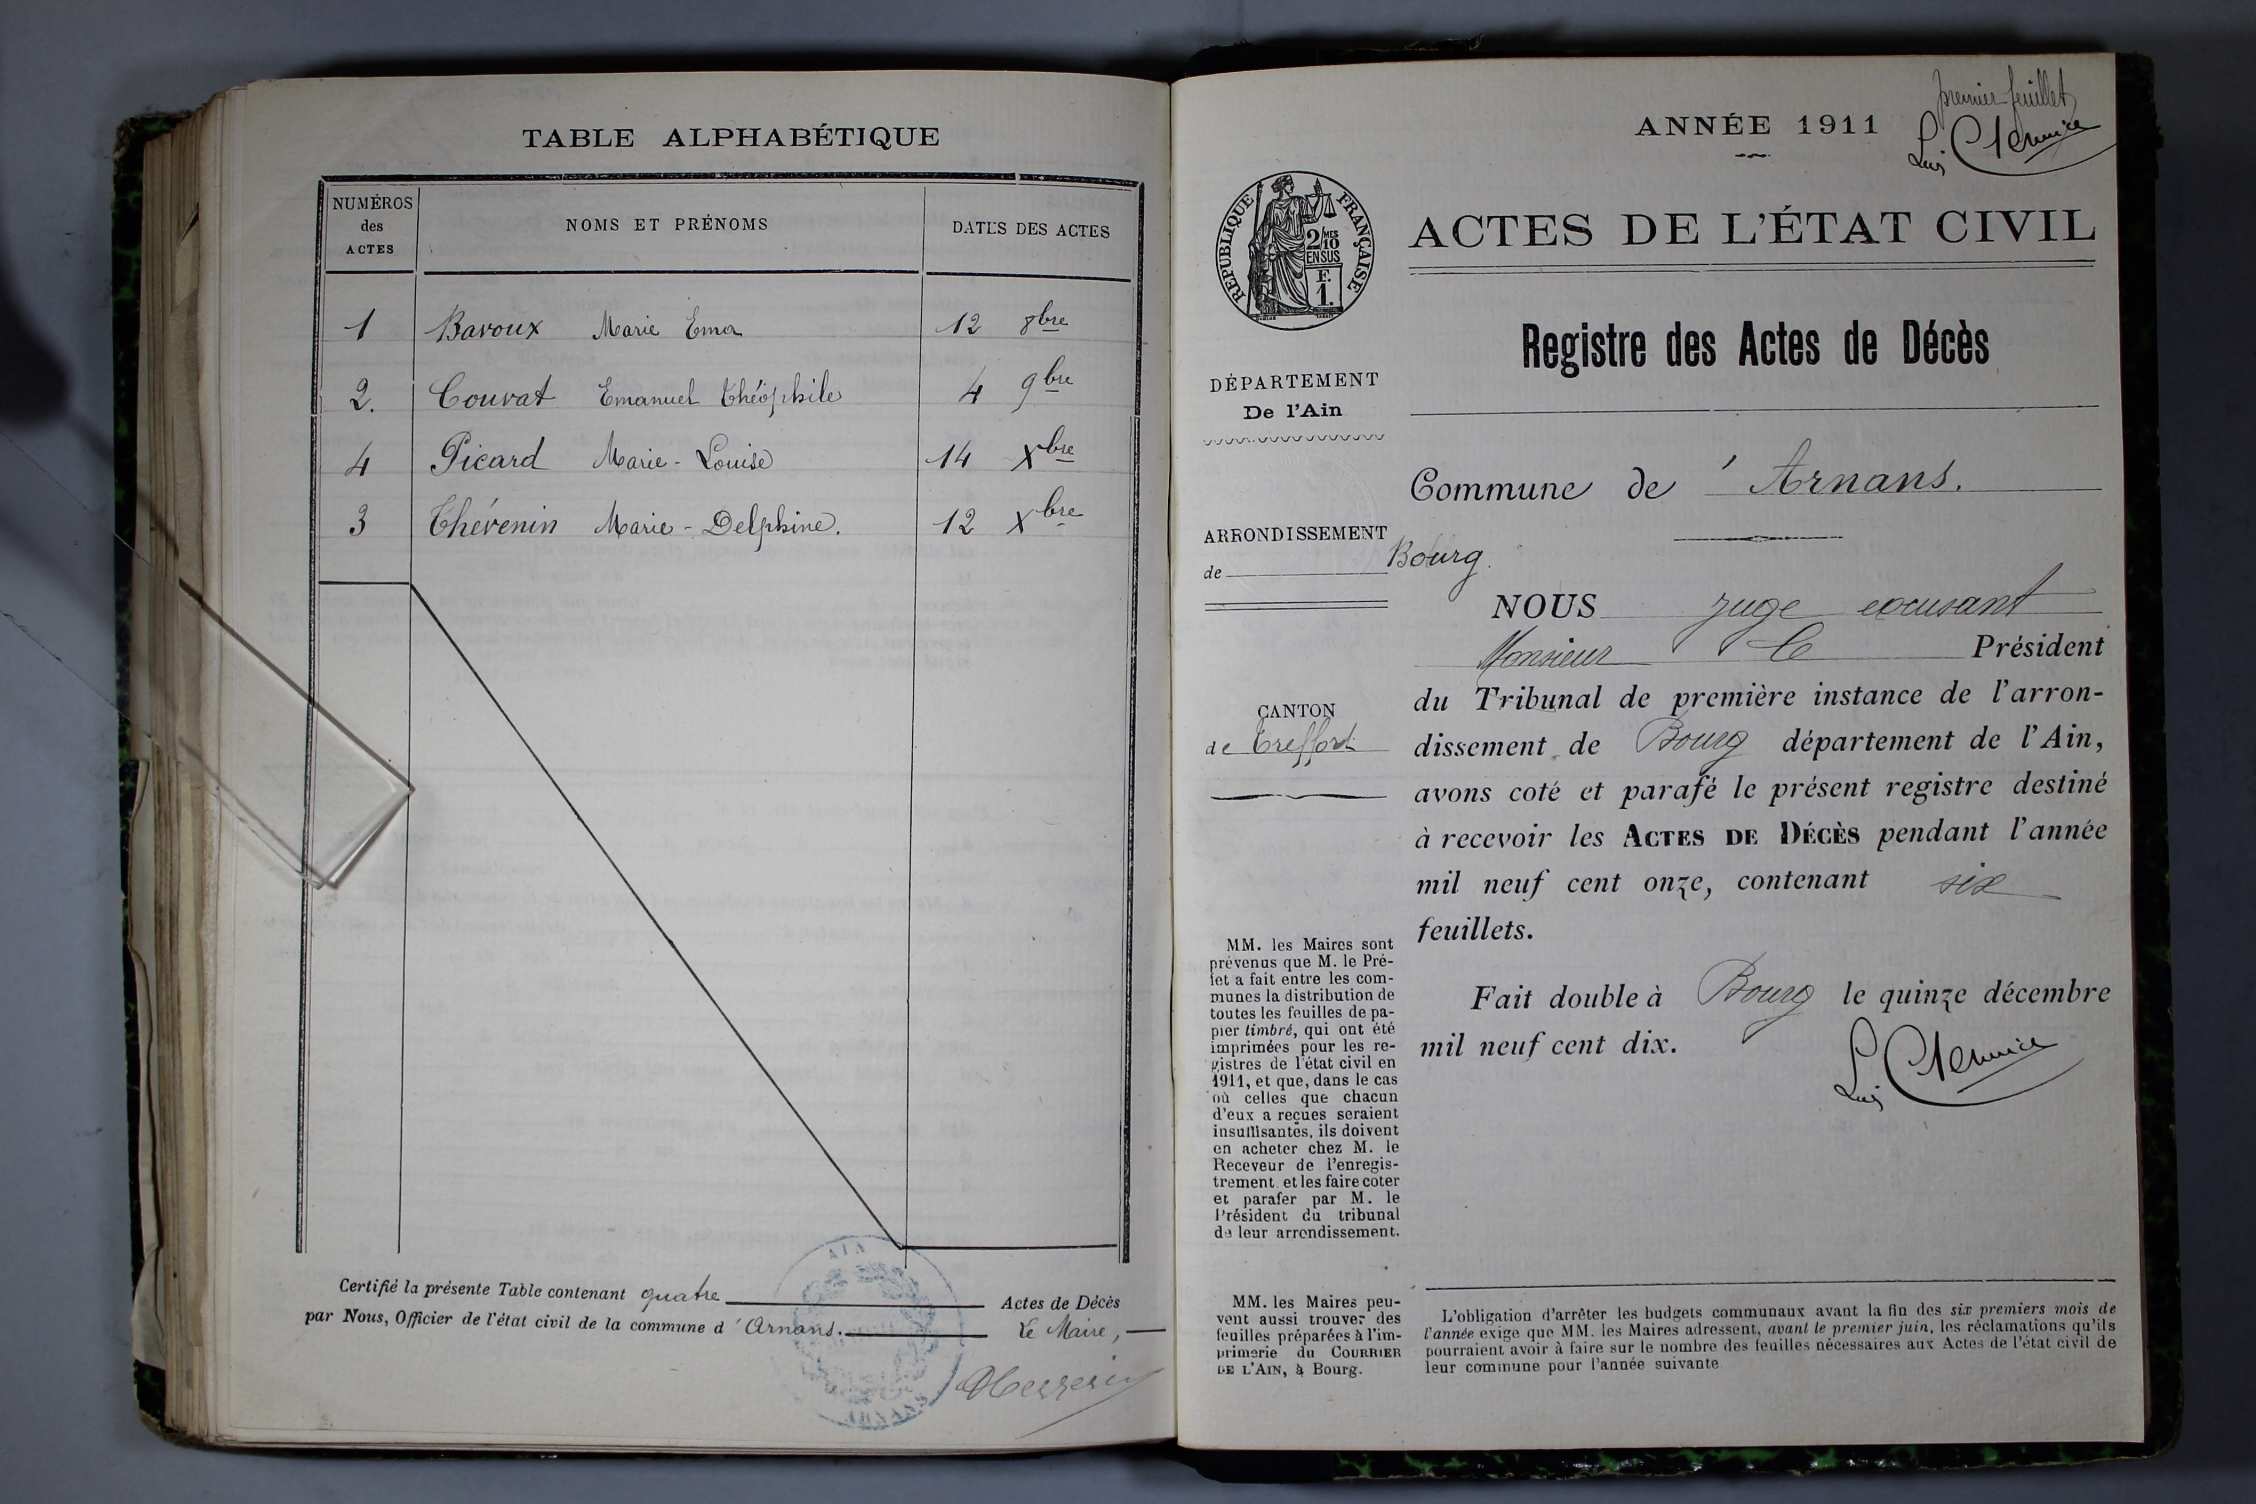 TABLE ALPHABÉTIQUE
NUMÉROS
des
ACTES
NOMS ET PRÉNOMS
DATES DES ACTES
1 Bavoux Marie Ema 12 8bre
2. Couvat Emanuel Théophile 4 9bre
4 Picard Marie-Louise 14 Xbre
3 Thévenin Marie-Delphine. 12 Xbre
Certifié la présente Table contenant quatre Actes de Décès
par Nous, Officier de l'état civil de la commune d'Arnans. Le Maire,
AIN
premier feuillet
ANNÉE 1911
RÉPUBLIQUE FRANÇAISE
2/10 MES
EN SUS
F.
1.
ACTES DE L'ÉTAT CIVIL
Registre des Actes de Décès
DÉPARTEMENT
De l'Ain
Commune de 'Arnans.
ARRONDISSEMENT
de Bourg.
CANTON
de Treffort
NOUS juge excusant
Monsieur le Président
du Tribunal de première instance de l'arron-
dissement de Bourg département de l'Ain,
avons coté et parafé le présent registre destiné
à recevoir les ACTES DE DÉCÈS pendant l'année
mil neuf cent onze, contenant six
feuillets.
Fait double à Bourg le quinze décembre
mil neuf cent dix.
MM. les Maires sont
prévenus que M. le Pré-
fet a fait entre les com-
munes la distribution de
toutes les feuilles de pa-
pier timbré, qui ont été
imprimées pour les re-
gistres de l'état civil en
1911, et que, dans le cas
où celles que chacun
d'eux a reçues seraient
insuffisantes, ils doivent
en acheter chez M. le
Receveur de l'enregis-
trement et les faire coter
et parafer par M. le
Président du tribunal
de leur arrondissement.
MM. les Maires peu-
vent aussi trouver des
feuilles préparées à l'im-
primerie du COURRIER
DE L'AIN, à Bourg.
L'obligation d'arrêter les budgets communaux avant la fin des six premiers mois de
l'année exige que MM. les Maires adressent, avant le premier juin, les réclamations qu'ils
pourraient avoir à faire sur le nombre des feuilles nécessaires aux Actes de l'état civil de
leur commune pour l'année suivante